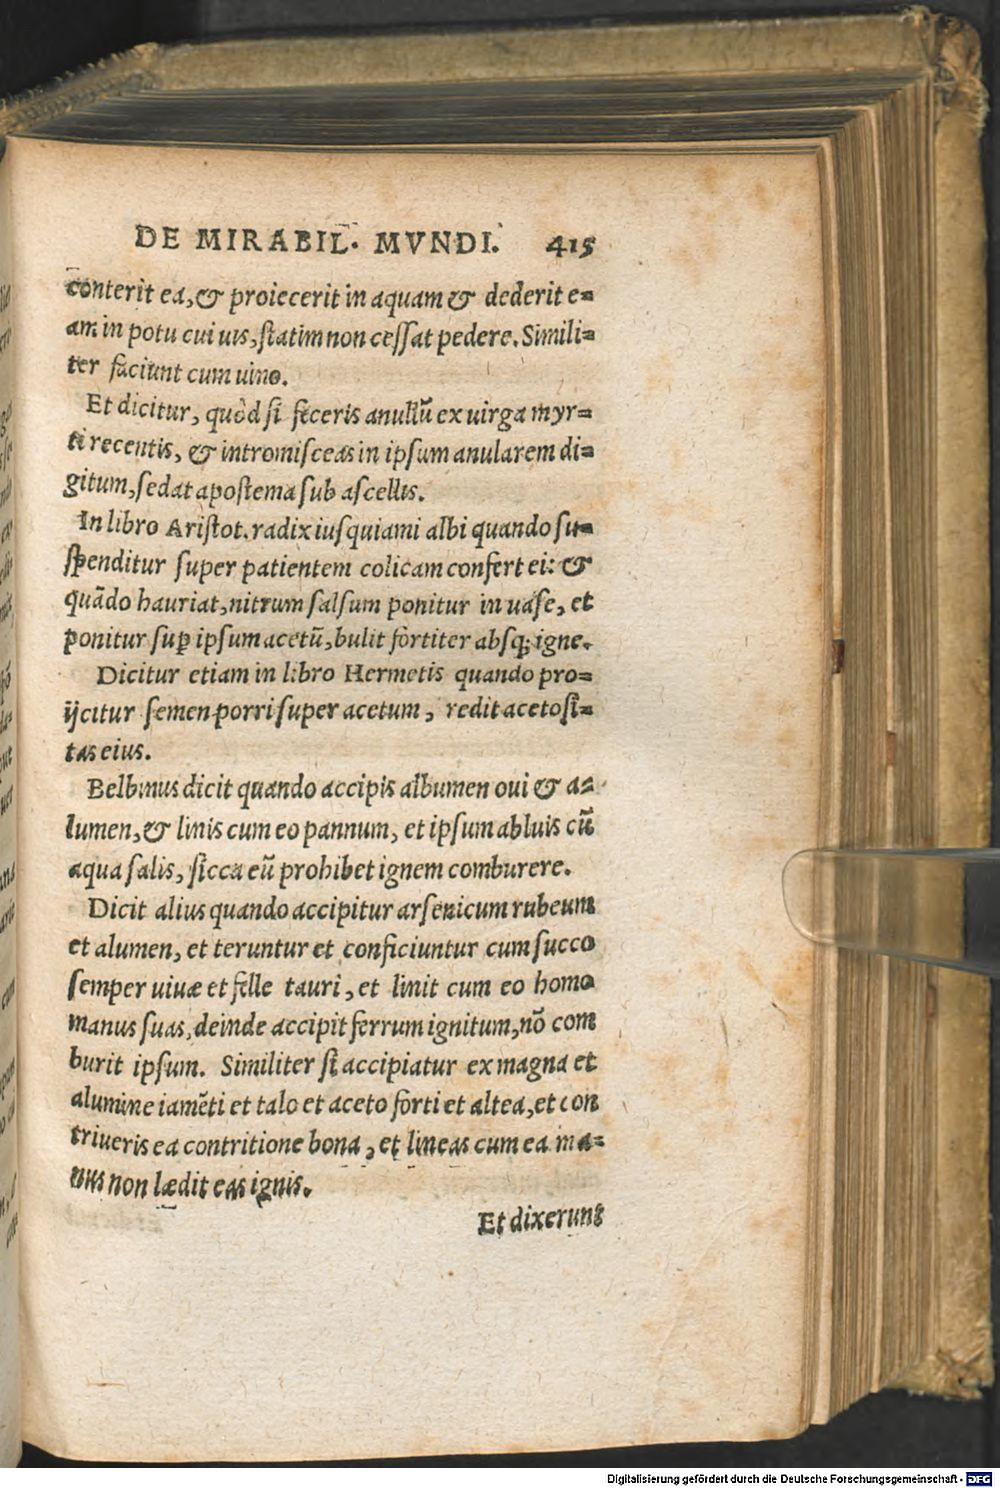 DE MIRABIL. MVNDI. 415
conterit ea, & proiecerit in aquam & dederit e=
am in potu cui uis, ſtatim non ceſſat pedere. Simili=
ter faciunt cum uino.
Et dicitur, quòd ſi feceris anullũ ex uirga myr=
ti recentis, & intromiſceas in ipſum anularem di=
gitum, ſedat apoſtema ſub aſcellis.
In libro Ariſtot. radix iuſquiami albi quando ſu=
ſpenditur ſuper patientem colicam confert ei: &
quãdo hauriat, nitrum ſalſum ponitur in uaſe, et
ponitur ſuꝑ ipſum acetũ, bulit fortiter abſq; igne.
Dicitur etiam in libro Hermetis quando pro=
ijcitur ſemen porri ſuper acetum, redit acetoſi=
tas eius.
Belbinus dicit quando accipis albumen oui & a=
lumen, & linis cum eo pannum, et ipſum abluis cũ
aqua ſalis, ſicca eũ prohibet ignem comburere.
Dicit alius quando accipitur arſenicum rubeum
et alumen, et teruntur et conficiuntur cum ſucco
ſemper uiuæ et felle tauri, et linit cum eo homo
manus ſuas, deinde accipit ferrum ignitum, nõ com
burit ipſum. Similiter ſi accipiatur ex magna et
alumine iamẽti et talo et aceto forti et altea, et con
triueris ea contritione bona, et lineas cum ea ma=
nus non lædit eas ignis.
Et dixerunt
Digitalisierung gefördert durch die Deutsche Forschungsgemeinschaft - DFG